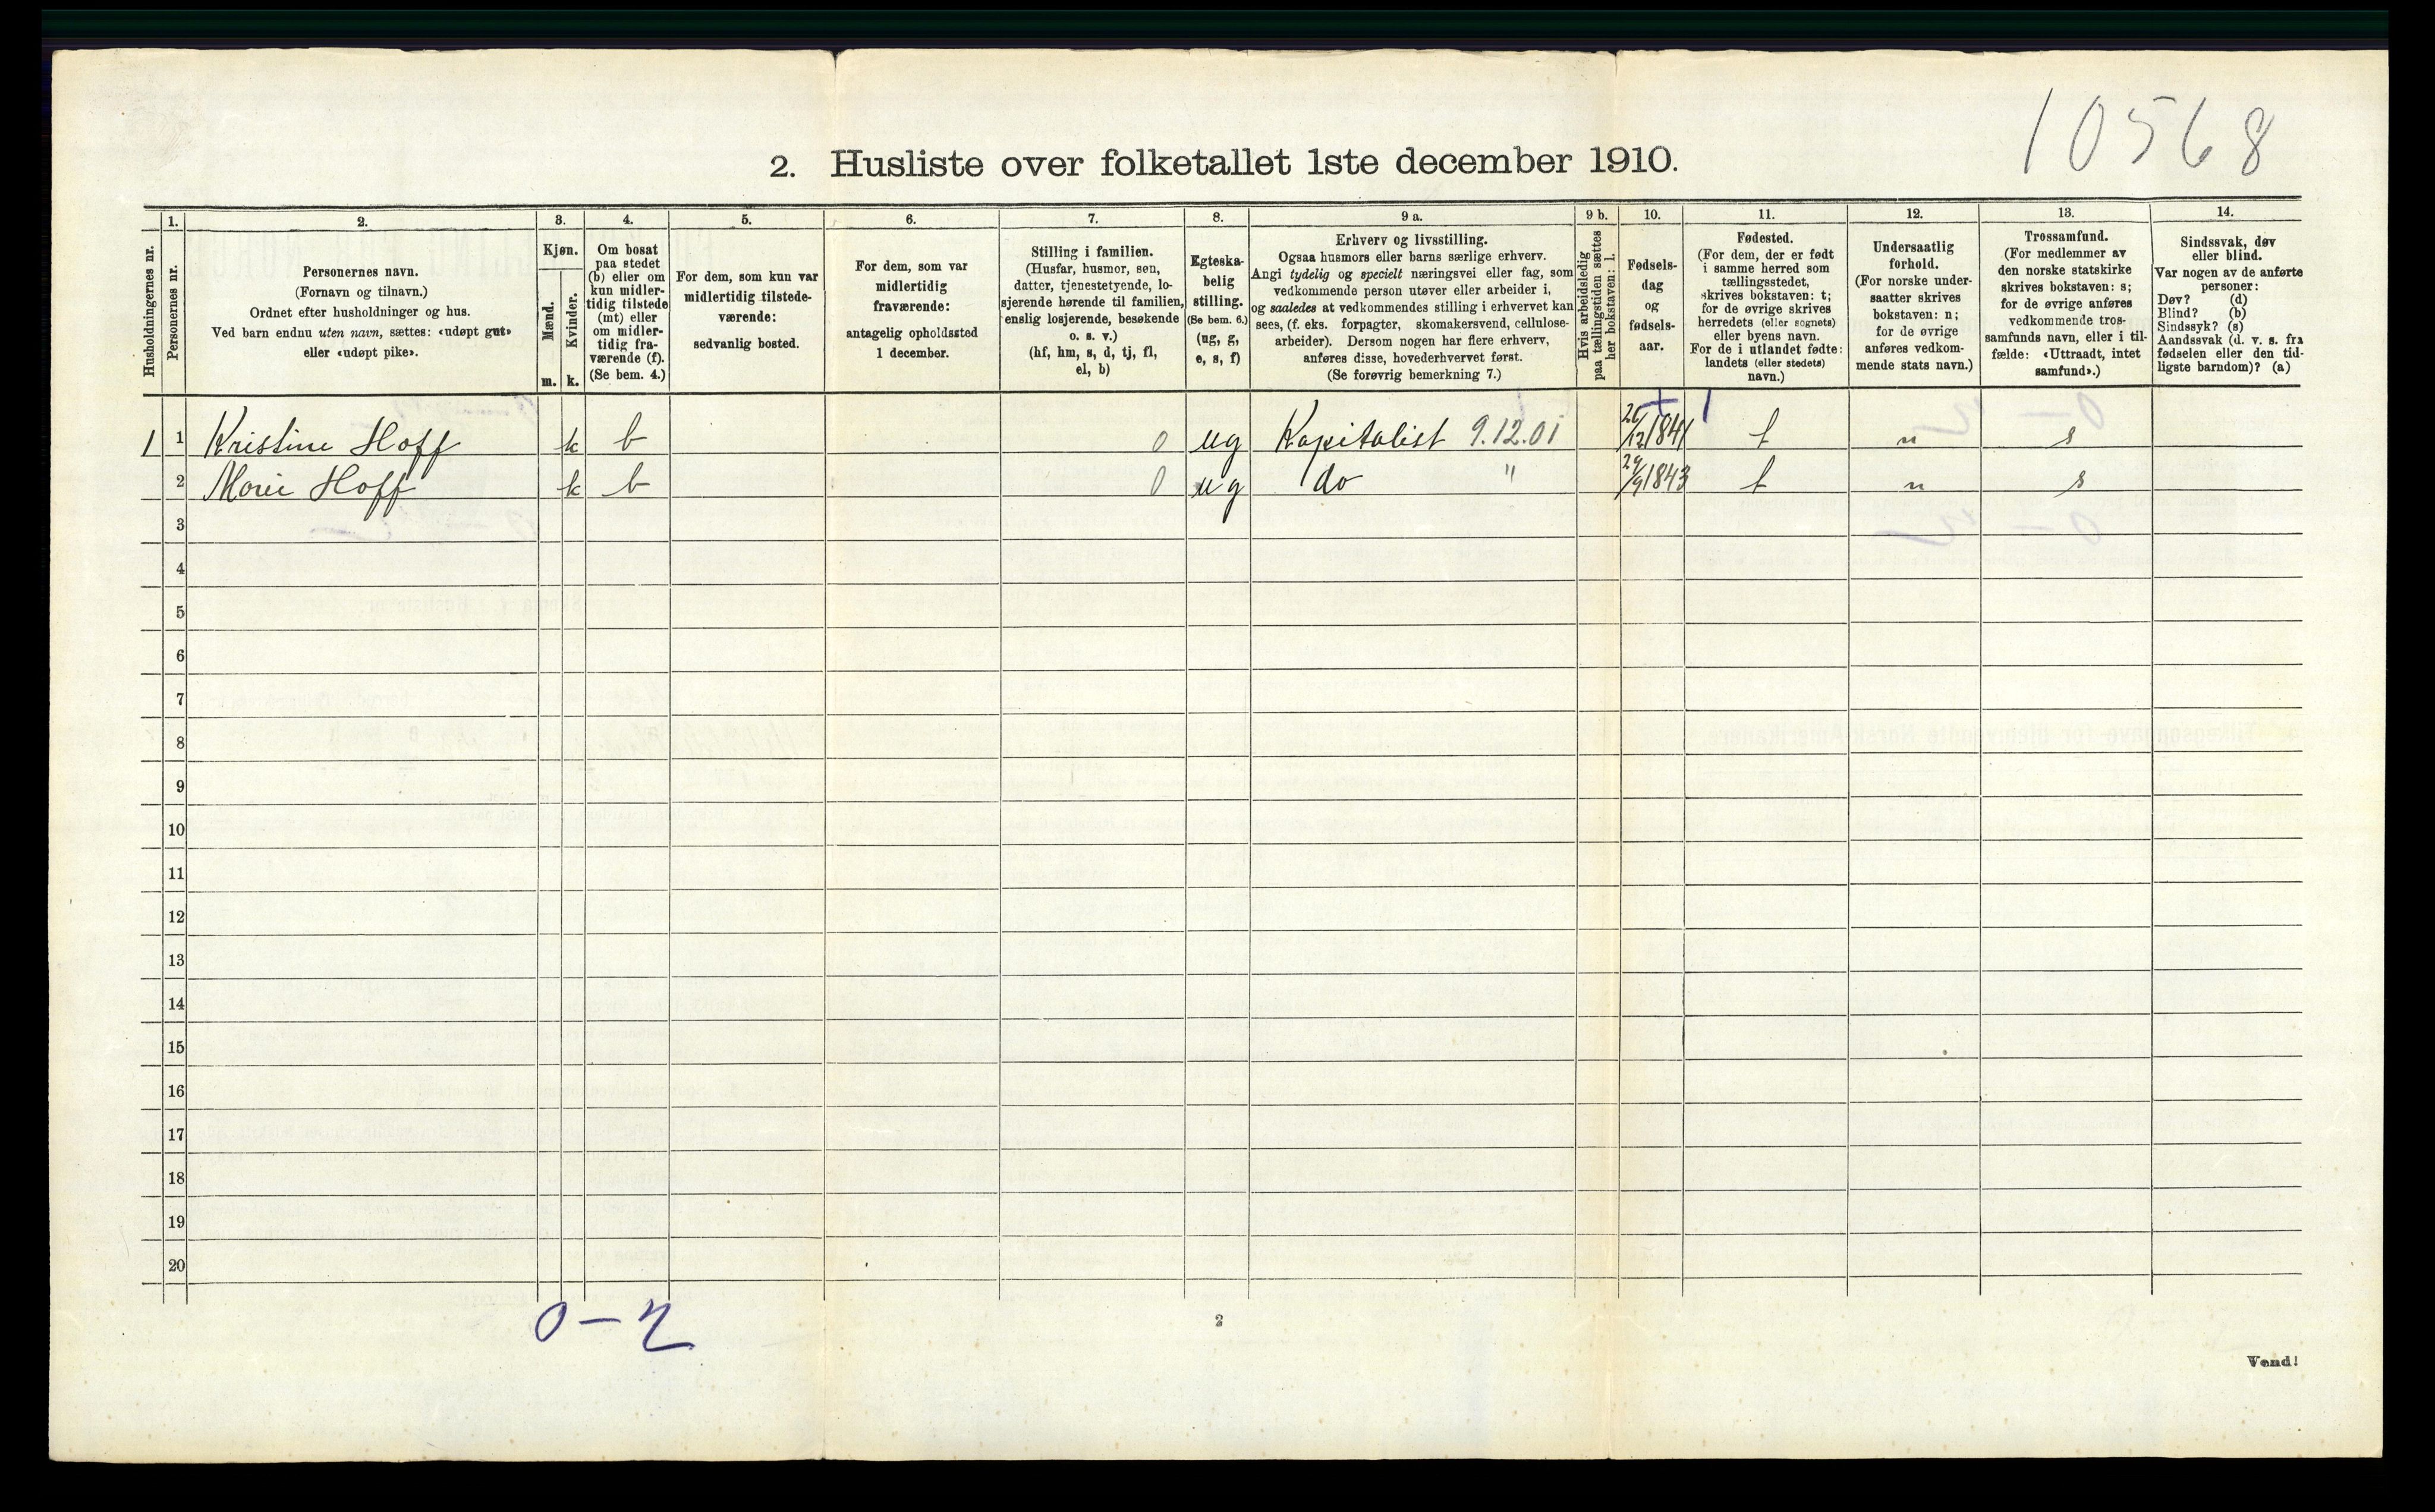 10568
2. Husliste over folketallet 1ste december 1910.
Husholdningernes nr.
1.
Personernes nr.
2.
Personernes navn.
(Fornavn og tilnavn.)
Ordnet efter husholdninger og hus.
Ved barn endnu uten navn, sættes: «udøpt gut»
eller «udøpt pike».
3.
Kjøn.
Mænd.
Kvinder.
m.
k.
4.
Om bosat
paa stedet
(b) eller om
kun midler-
tidig tilstede
(mt) eller
om midler-
tidig fra-
værende (f).
(Se bem. 4.)
5.
For dem, som kun var
midlertidig tilstede-
værende:
sedvanlig bosted.
6.
For dem, som var
midlertidig
fraværende:
antagelig opholdssted
1 december.
7.
Stilling i familien.
(Husfar, husmor, søn,
datter, tjenestetyende, lo-
sjerende hørende til familien,
enslig losjerende, besøkende
o. s. v.)
(hf, hm, s, d, tj, fl,
el, b)
8.
Egteska-
belig
stilling.
(Se bem. 6.)
(ug, g,
e, s, f)
9 a.
Erhverv og livsstilling.
Ogsaa husmors eller barns særlige erhverv.
Angi tydelig og specielt næringsvei eller fag, som
vedkommende person utøver eller arbeider i,
og saaledes at vedkommendes stilling i erhvervet kan
sees, (f. eks. forpagter, skomakersvend, cellulose-
arbeider). Dersom nogen har flere erhverv,
anføres disse, hovederhvervet først.
(Se forøvrig bemerkning 7.)
9 b.
Hvis arbeidsledig
paa tællingstiden sættes
her bokstaven: l.
10.
Fødsels-
dag
og
fødsels-
aar.
11.
Fødested.
(For dem, der er født
i samme herred som
tællingsstedet,
skrives bokstaven: t;
for de øvrige skrives
herredets (eller sognets)
eller byens navn.
For de i utlandet fødte:
landets (eller stedets)
navn.)
12.
Undersaatlig
forhold.
(For norske under-
saatter skrives
bokstaven: n;
for de øvrige
anføres vedkom-
mende stats navn.)
13.
Trossamfund.
(For medlemmer av
den norske statskirke
skrives bokstaven: s;
for de øvrige anføres
vedkommende tros-
samfunds navn, eller i til-
fælde: «Uttraadt, intet
samfund».)
14.
Sindssvak, døv
eller blind.
Var nogen av de anførte
personer:
Døv? (d)
Blind? (b)
Sindssyk? (s)
Aandssvak (d. v. s. fra
fødselen eller den tid-
ligste barndom)? (a)
1 1 Kristine Hoff k b 0 ug Kapitalist 9.12.01 26/12 1841 t n s
2 Marie Hoff k b 0 ug do " 29/9 1843 t n s
3
4
5
6
7
8
9
10
11
12
13
14
15
16
17
18
19
20
0-2
2
Vend!